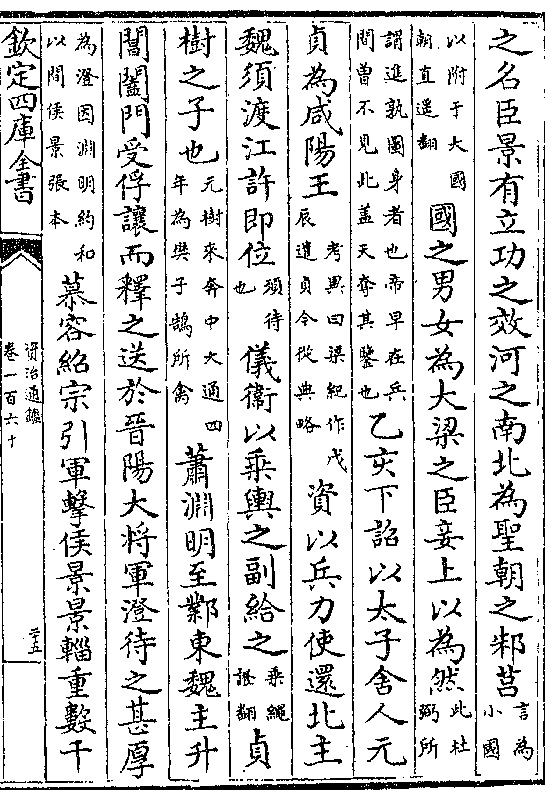 之名臣景有立功之效河之南北為聖朝之邾莒言為小國
以附于大國朝直遥翻國之男女為大梁之臣妾上以為然此杜弼所
謂進孰圖身者也帝早在兵間曽不見此蓋天奪其鑒也乙亥下詔以太子舍人元
貞為咸陽王考異曰梁紀作戊辰遣貞今從典略資以兵力使還北主
魏須渡江許即位須待也儀衛以乘輿之副給之乘繩證翻貞
樹之子也元樹來奔中大通四年為樊子鵠所禽蕭淵明至鄴東魏主升
閶闔門受俘讓而釋之送於晉陽大將軍澄待之甚厚
為澄因淵明約和以間侯景張本慕容紹宗引軍擊侯景景輜重數千
欽定四庫全書
資治通鑑
卷一百六十
二十五